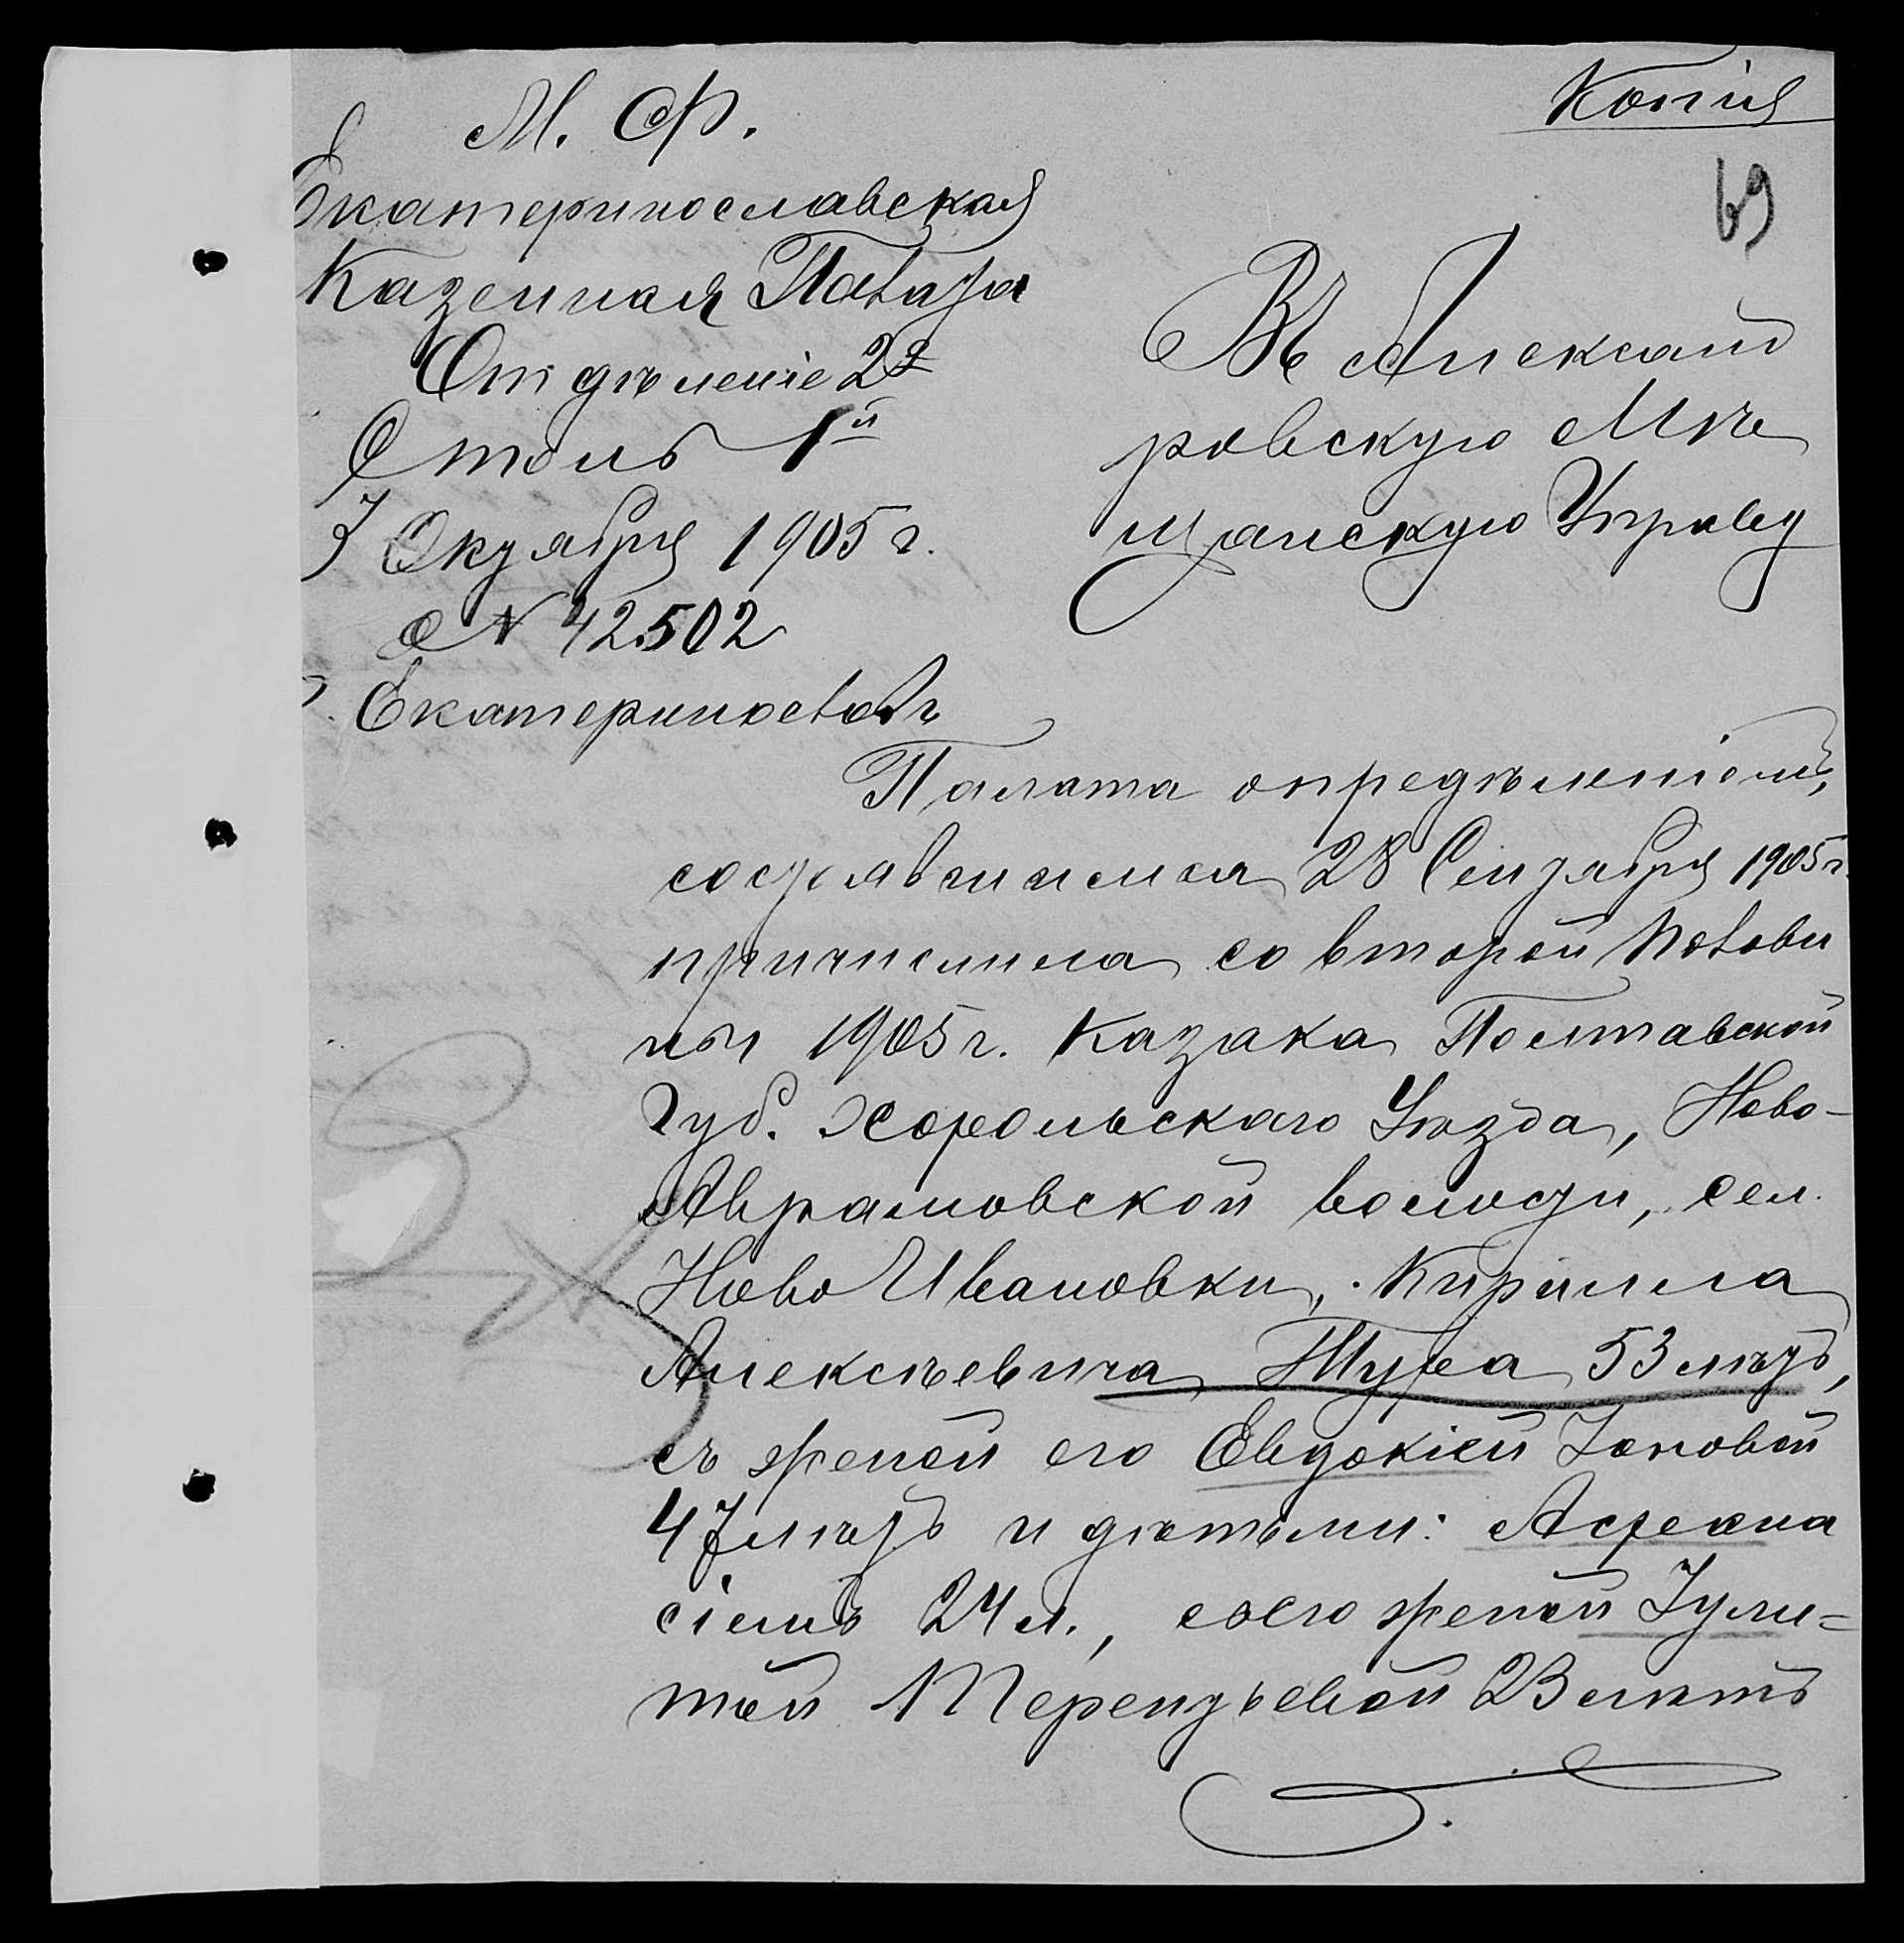 Копія
69
М. Ф.
Екатеринославская
Казенная Палата
Отдѣленіе 2е
Столъ 1й
7 Октября 1905 г.
№ 42502
г. Екатеринославъ
Въ Александ
ровскую Мѣ
щанскую Управу
Палата опредѣленіемъ,
состоявшимся 28 Сентября 1905 г.
причислила со второй полови
ны 1905 г. казака Полтавской
Губ. Хорольскаго Уѣзда, Ново-
Аврамовской волости, сел.
Ново Ивановки, Кирилла
Алексѣевича 53 лѣтъ,
съ женой его Евдокіей Іоновой
47 лѣтъ и дѣтьми:
24 л., съ его женой Іули=
той Терентьевой 23 лѣтъ